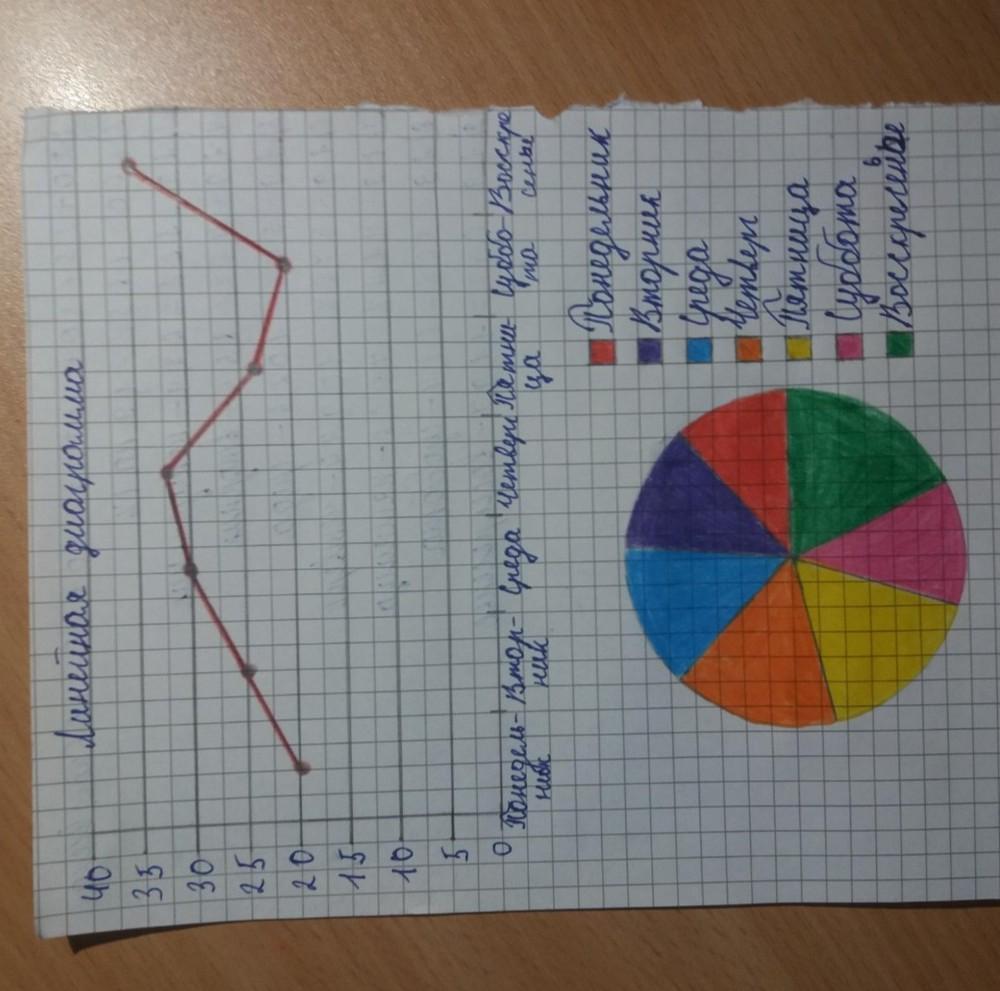 Линейная диаграмма
40
35
30
25
20
15
10
5
0
Понедель- Втор- Среда Четверг Пятни- Суббо- Воскре
ник ник ца та сенье
Понедельник
Вторник
Среда
Четверг
Пятница
Суббота
Воскресенье